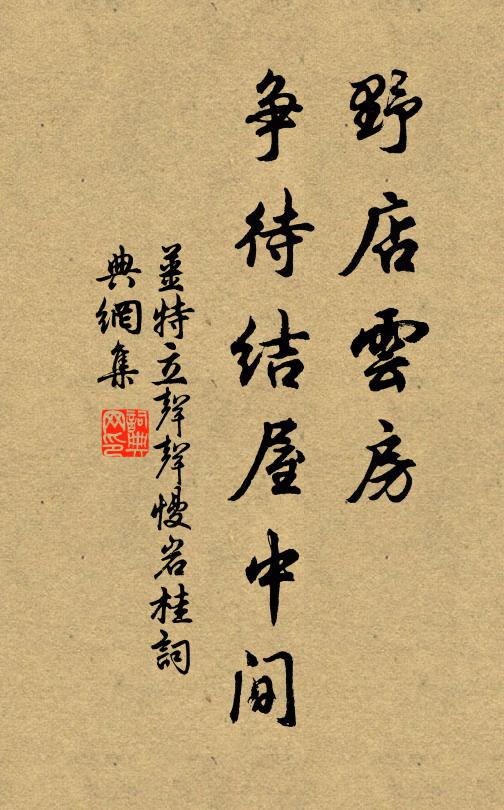 野店雲房
争待结屋中间
姜特立聲聲慢岩桂詞
典網集
詞典网印